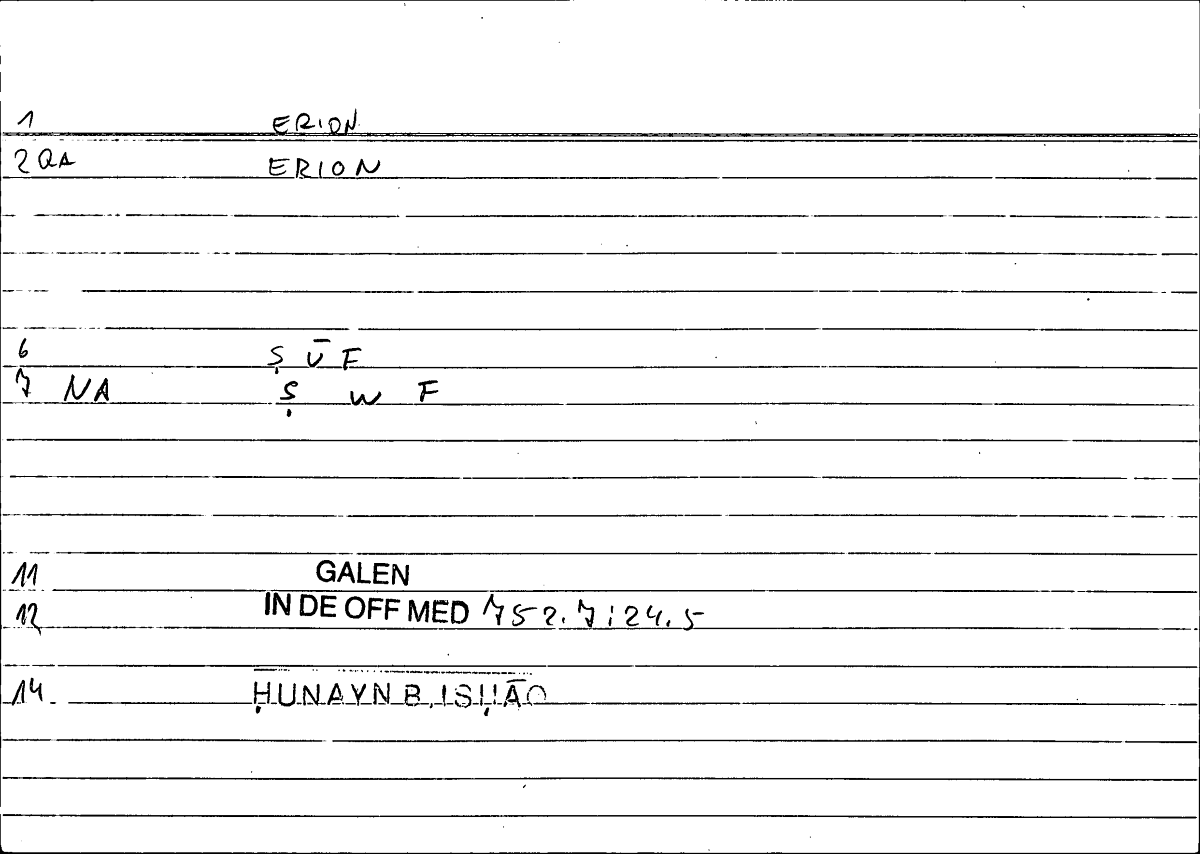 1 ERION
2 QA ERION
6 ṢŪF
7 NA Ṣ W F
11 GALEN
12 IN DE OFF MED 752.7:24.5
14 ḤUNAYN B. ISḤĀQ